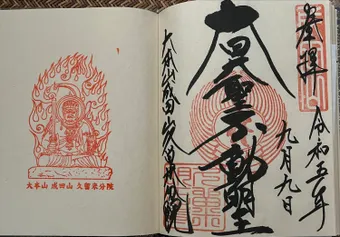 奉拝
令和五年
九月九日
大聖不動明王
大本山成田山久留米分院
大本山 成田山 久留米分院